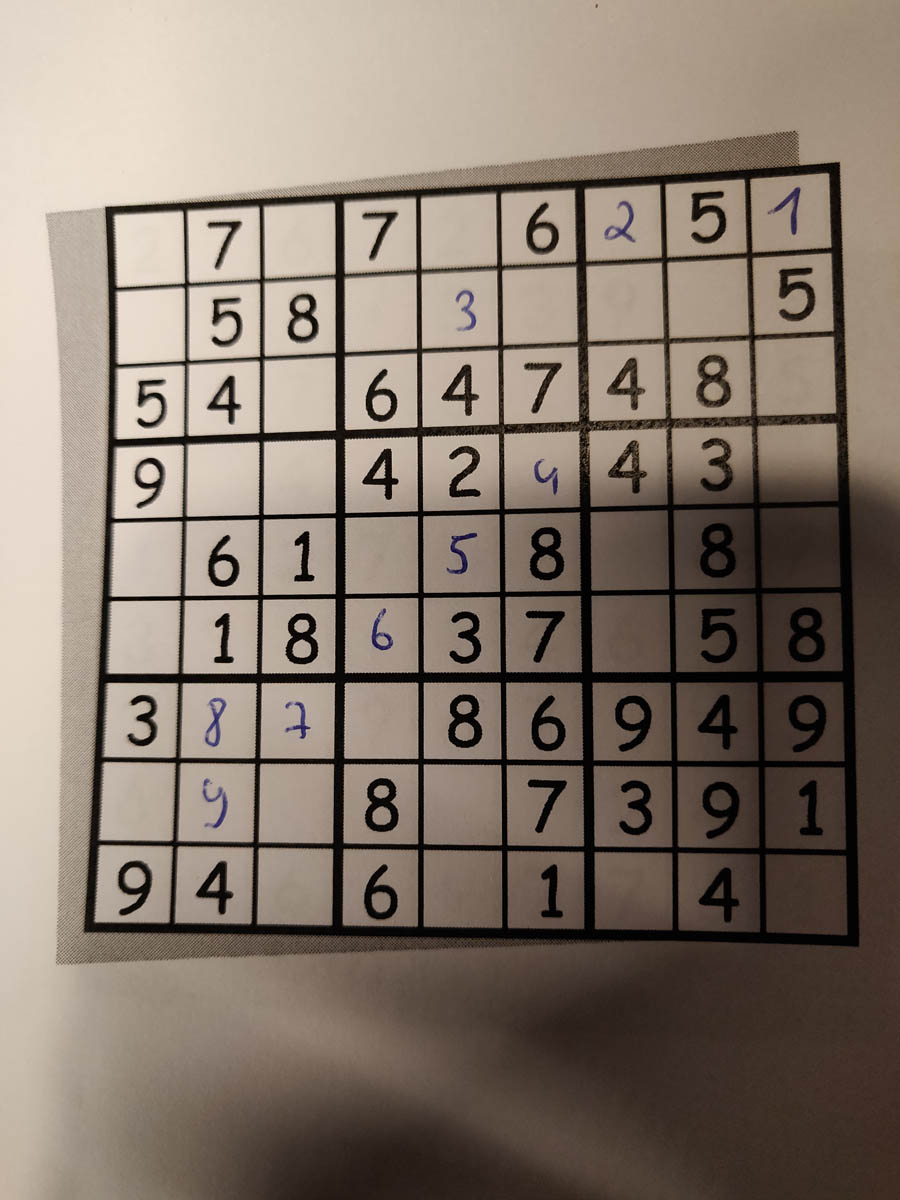 7 7 6 2 5 1
5 8 3 5
5 4 6 4 7 4 8
9 4 2 9 4 3
6 1 5 8 8
1 8 6 3 7 5 8
3 8 7 8 6 9 4 9
9 8 7 3 9 1
9 4 6 1 4